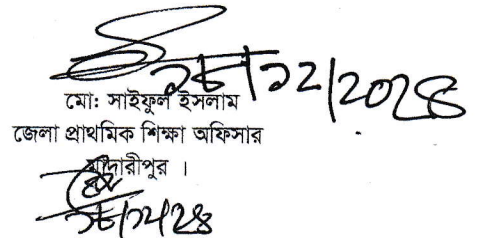 ১৮/১২/২০২৪
মো: সাইফুল ইসলাম
জেলা প্রাথমিক শিক্ষা অফিসার
মাদারীপুর ।
১৮/১২/২৪